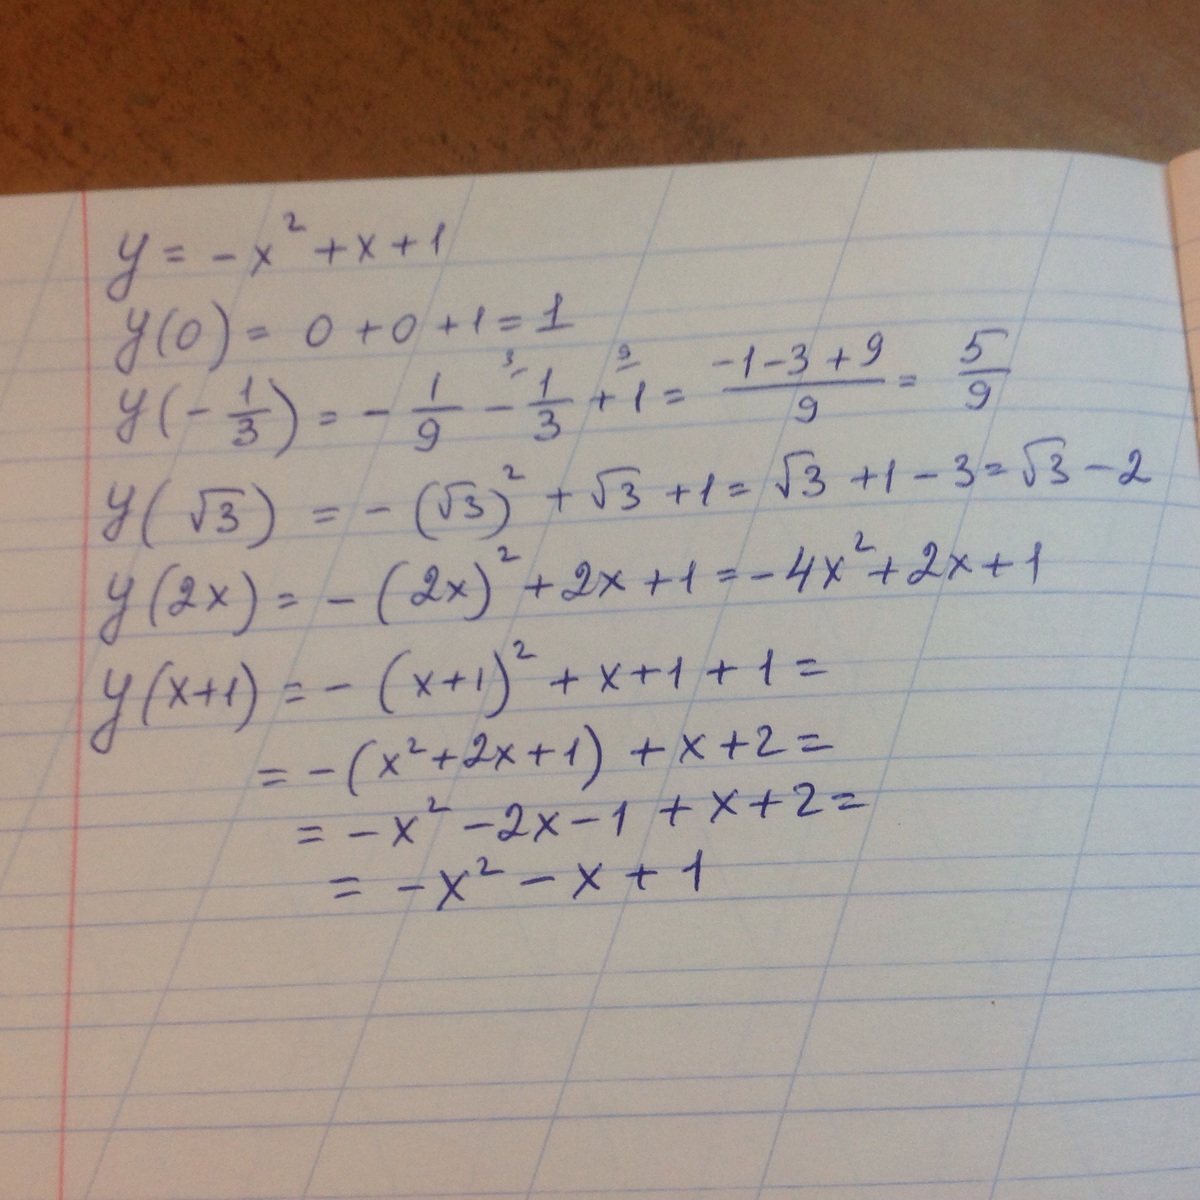 y = -x² + x + 1
y(0) = 0 + 0 + 1 = 1
y(-1/3) = -1/9 - 1/3 + 1 = (-1-3+9)/9 = 5/9
y(√3) = -(√3)² + √3 + 1 = √3 + 1 - 3 = √3 - 2
y(2x) = -(2x)² + 2x + 1 = -4x² + 2x + 1
y(x+1) = -(x+1)² + x + 1 + 1 =
= -(x² + 2x + 1) + x + 2 =
= -x² - 2x - 1 + x + 2 =
= -x² - x + 1